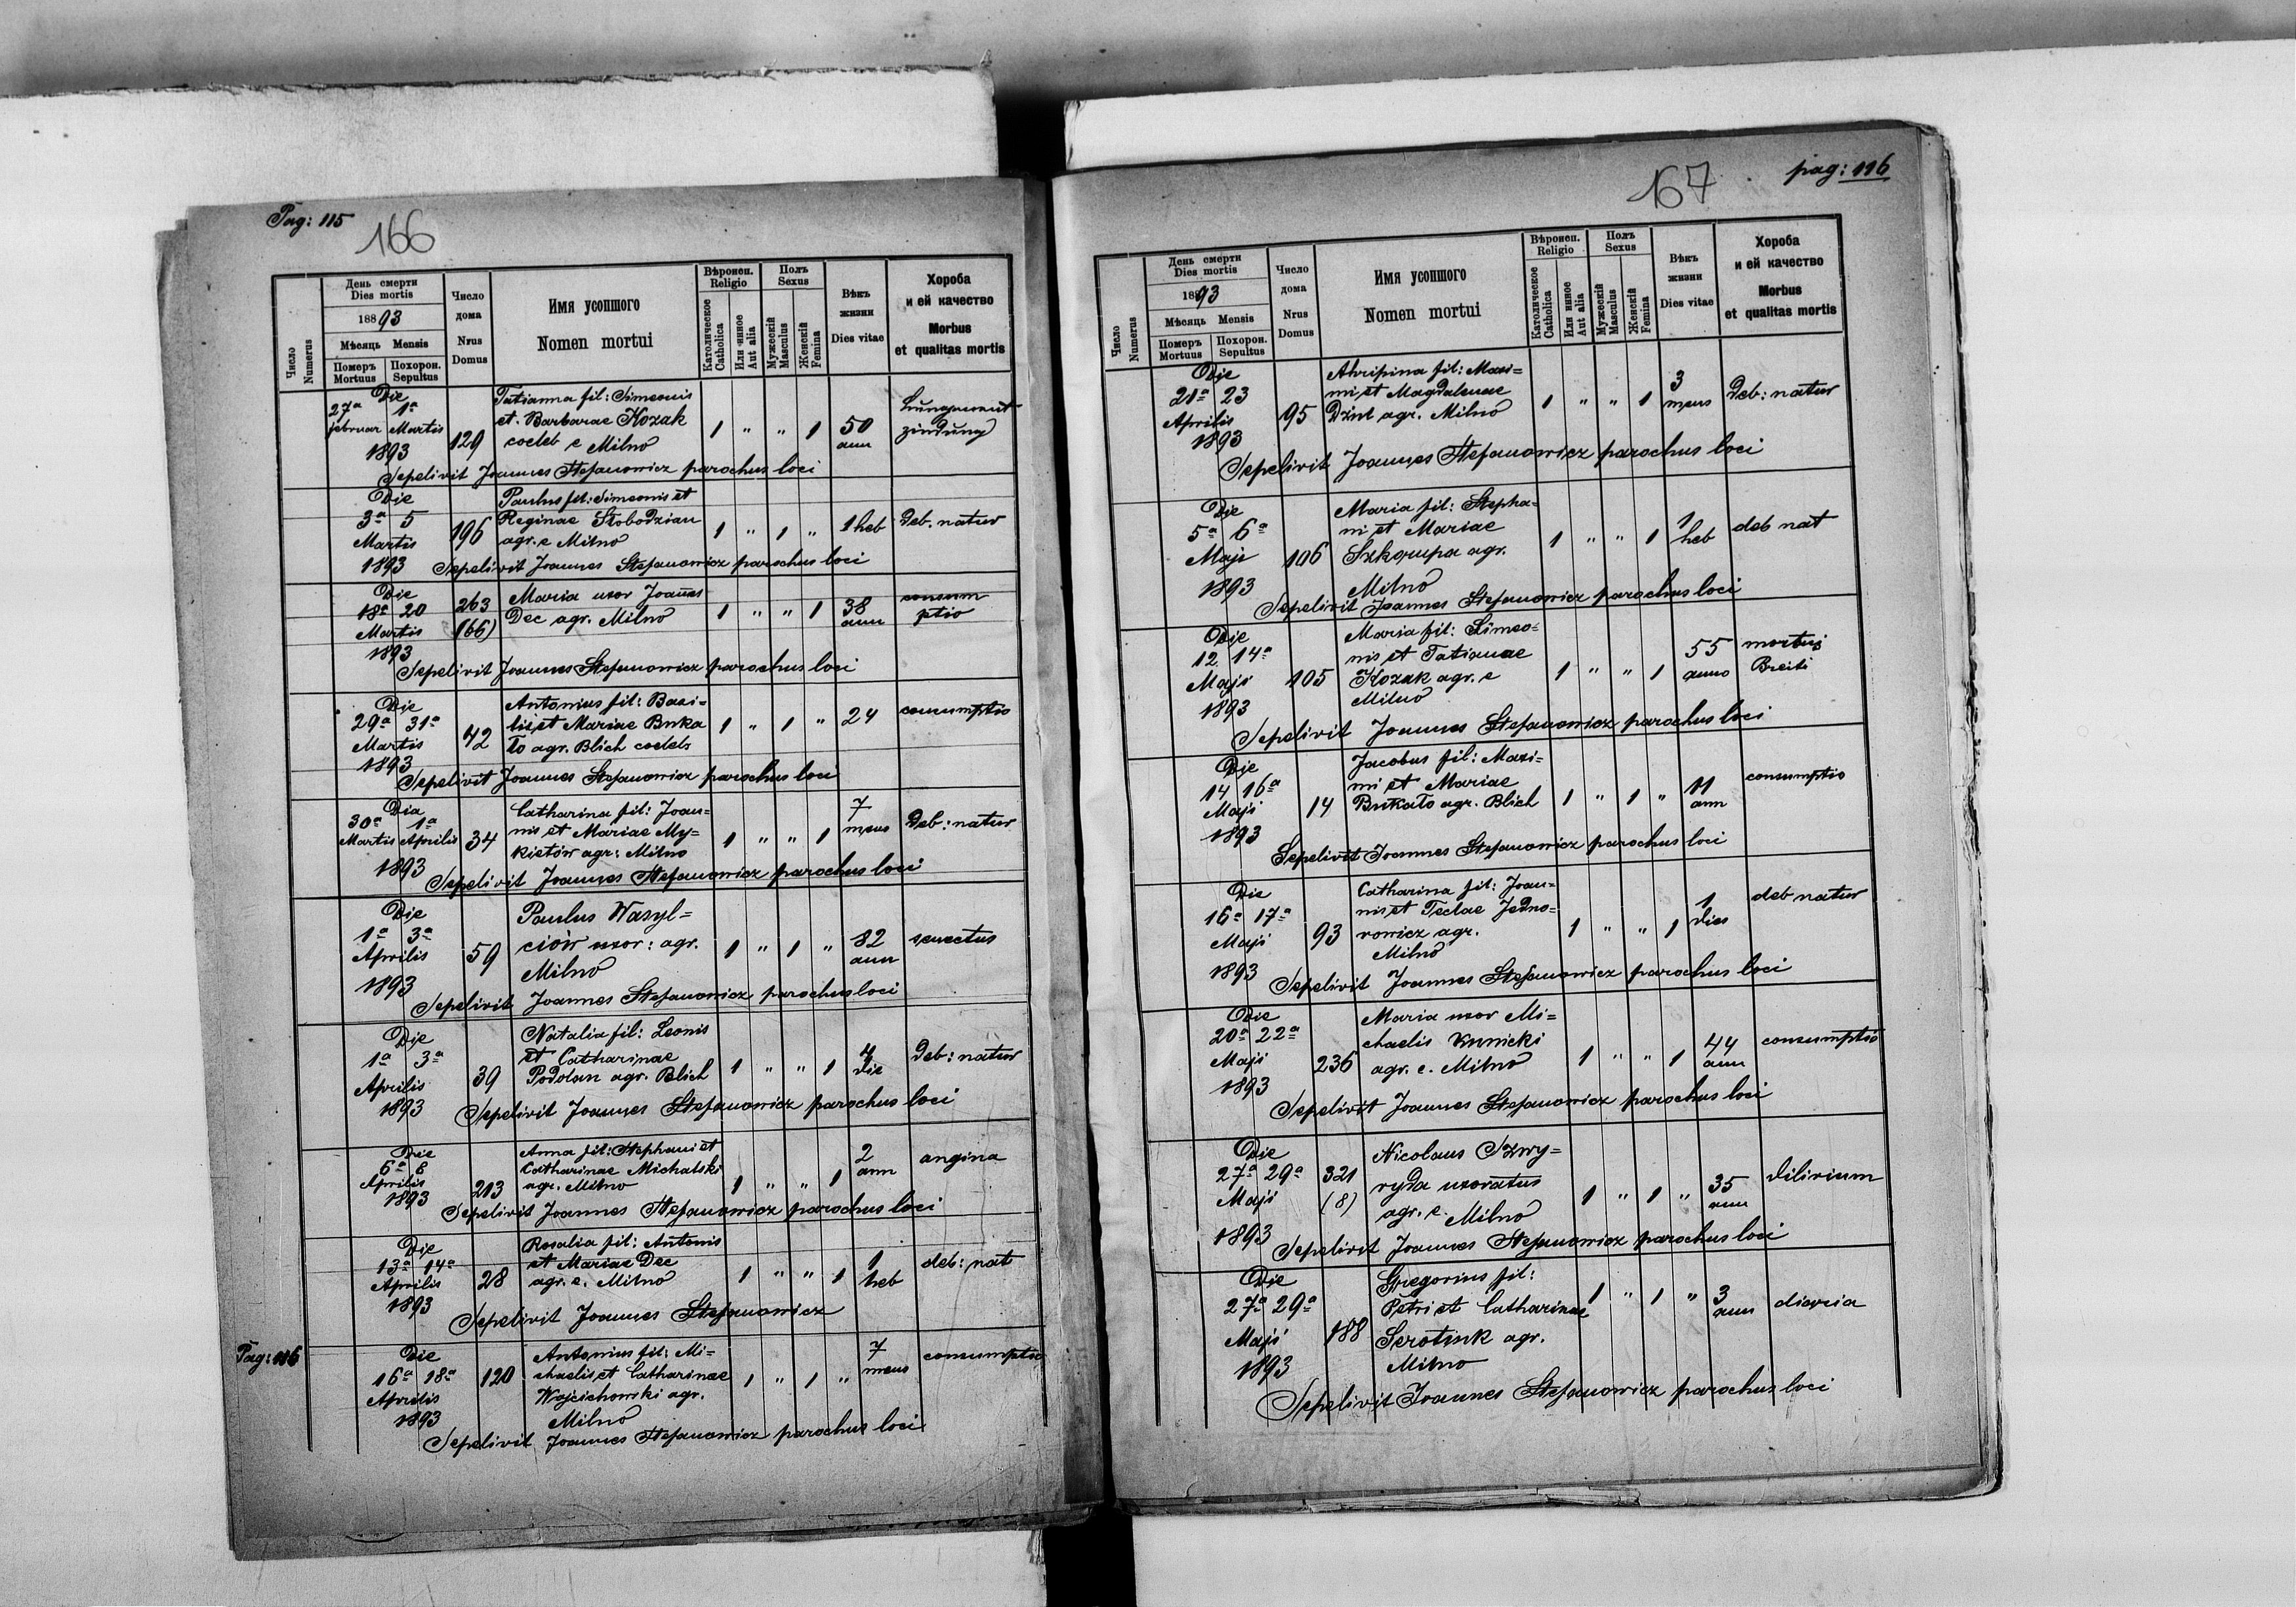 Pag: 115
166
Число Numerus
День смерти Dies mortis
1893
Мѣсяць Mensis
Померъ Mortuus
Похорон. Sepultus
Число дома Nrus Domus
Имя усопшого
Nomen mortui
Вѣроисп. Religio
Католическое Catholica
Или инное Aut alia
Полъ Sexus
Мужескій Masculus
Женскій Femina
Вѣкъ жизни Dies vitae
Хороба и ей качество
Morbus et qualitas mortis
Die
27a 1a
februar Martis
1893
129
Tatianna fil: Simeonis
et Barbarae Kozak
coeleb e Milno
1 " " 1
50 ann
Sepelivit Joannes Stefanowicz parochus loci
Die
3a 5
Martis
1893
196
Paulus fil: Simeonis et
Reginae Slobodzian
agr. e Milno
1 " 1 "
1 heb
Deb. natur
Sepelivit Joannes Stefanowicz parochus loci
Die
18a 20
Martis
1893
263
166)
Maria uxor Joannes
Dec agr. Milno
1 " " 1
38 ann
consum
ptio
Sepelivit Joannes Stefanowicz parochus loci
Die
29a 31a
Martis
1893
42
Antonius fil: Basi=
lis et Mariae Buka
To agr. Blich coeleb
1 " 1 "
24
consumptio
Sepelivit Joannes Stefanowicz parochus loci
Dia
30a 1a
Martis Aprilis
1893
34
Catharina fil: Joan=
nis et Mariae My=
kietów agr: Milno
1 " " 1
7 mens
Deb: natur
Sepelivit Joannes Stefanowicz parochus loci
Die
1a 3a
Aprilis
1893
59
Paulus Wasyl=
ciów uxor: agr.
Milno
1 " 1 "
82 ann
senectus
Sepelivit Joannes Stefanowicz parochus loci
Die
1a 3a
Aprilis
1893
39
Natalia fil: Leonis
et Catharinae
Podolan agr. Blich
1 " " 1
4 die
Deb: natur
Sepelivit Joannes Stefanowicz parochus loci
Die
6a 8
Aprilis
1893
213
Anna fil: Stephani et
Catharinae Michalski
agr. Milno
1 " " 1
2 ann
angina
Sepelivit Joannes Stefanowicz parochus loci
Die
13a 14a
Aprilis
1893
28
Rosalia fil: Antonis
et Mariae Dec
agr. e. Milno
1 " " 1
1 heb
deb: nat
Sepelivit Joannes Stefanowicz
Pag: 116
Die
16a 18a
Aprilis
1893
120
Antonius fil: Mi=
chaelis et Catharinae
Wojcichowski agr.
Milno
1 " 1 "
7 mens
consumptio
Sepelivit Joannes Stefanowicz parochus loci
167
pag: 116
Число Numerus
День смерти Dies mortis
1893
Мѣсяць Mensis
Померъ Mortuus
Похорон. Sepultus
Число дома Nrus Domus
Имя усопшого
Nomen mortui
Вѣроисп. Religio
Католическое Catholica
Или инное Aut alia
Полъ Sexus
Мужескій Masculus
Женскій Femina
Вѣкъ жизни Dies vitae
Хороба и ей качество
Morbus et qualitas mortis
Die
21a 23
Aprilis
1893
95
Ahripina fil: Maxi=
mi et Magdalenae
agr. Milno
1 " " 1
3 mens
Deb: natur
Sepelivit Joannes Stefanowicz parochus loci
Die
5a 6a
Maji
1893
106
Maria fil: Stepha=
ni et Mariae
Szkarupa agr.
Milno
1 " " 1
1 heb
deb nat
Sepelivit Joannes Stefanowicz parochus loci
Die
12 14a
Maji
1893
105
Maria fil: Simeo=
nis et Tatianae
Kozak agr. e
Milno
1 " " 1
55 anno
mortus
Sepelivit Joannes Stefanowicz parochus loci
Die
14 16a
Maji
1893
14
Jacobus fil: Maxi=
mi et Mariae
BukaTo agr. Blich
1 " 1 "
11 ann
consumptio
Sepelivit Joannes Stefanowicz parochus loci
Die
16a 17a
Maji
1893
93
Catharina fil: Joan=
nis et Teclae Jedno=
rowicz agr.
Milno
1 " " 1
1 dies
deb natur
Sepelivit Joannes Stefanowicz parochus loci
Die
20a 22a
Maji
1893
236
Maria uxor Mi=
chaelis Kunicki
agr. e. Milno
1 " " 1
44 ann
consumptio
Sepelivit Joannes Stefanowicz parochus loci
Die
27a 29a
Maji
1893
321
(8)
Nicolaus Szwy=
ryda uxoratus
agr. e. Milno
1 " 1 "
35 ann
dilirium
Sepelivit Joannes Stefanowicz parochus loci
Die
27a 29a
Maji
1893
188
Gregorius fil:
Petri et Catharinae
Serotiuk agr.
Milno
1 " 1 "
3 ann
diaria
Sepelivit Joannes Stefanowicz parochus loci